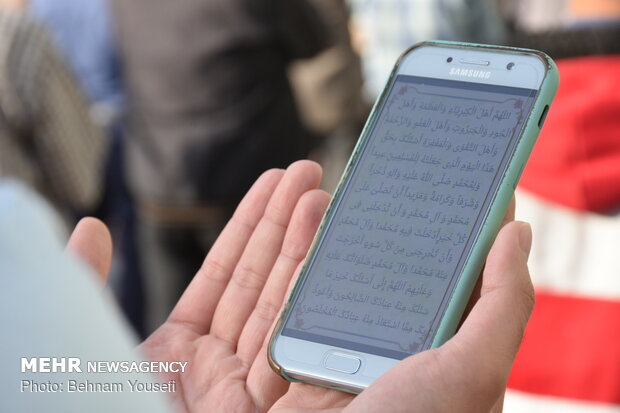 SAMSUNG
اللّهُمَّ أَهْلَ الْكِبْرِيَاءِ وَالْعَظَمَةِ وَأَهْلَ
الْجُودِ وَالْجَبَرُوتِ وَأَهْلَ الْعَفْوِ وَالرَّحْمَةِ
وَأَهْلَ التَّقْوَى وَالْمَغْفِرَةِ أَسْأَلُكَ بِحَقِّ
هَذَا الْيَوْمِ الَّذِي جَعَلْتَهُ لِلْمُسْلِمِينَ عِيدا
وَلِمُحَمَّدٍ صَلَّى اللَّهُ عَلَيْهِ وَآلِهِ ذُخْرًا
وَشَرَفًا وَكَرَامَةً وَمَزِيدًا أَنْ تُصَلِّيَ عَلَى
مُحَمَّدٍ وَآلِ مُحَمَّدٍ وَأَنْ تُدْخِلَنِي فِي
كُلِّ خَيْرٍ أَدْخَلْتَ فِيهِ مُحَمَّدًا وَآلَ مُحَمَّدٍ
وَأَنْ تُخْرِجَنِي مِنْ كُلِّ سُوءٍ أَخْرَجْتَ
مِنْهُ مُحَمَّدًا وَآلَ مُحَمَّدٍ صَلَوَاتُكَ عَلَيْهِ
وَعَلَيْهِمُ اللَّهُمَّ إِنِّي أَسْأَلُكَ خَيْرَ مَا
سَأَلَكَ مِنْهُ عِبَادُكَ الصَّالِحُونَ وَأَعُوذُ
بِكَ مِمَّا اسْتَعَاذَ مِنْهُ عِبَادُكَ الْمُخْلَصُونَ
MEHR NEWSAGENCY
Photo: Behnam Yousefi